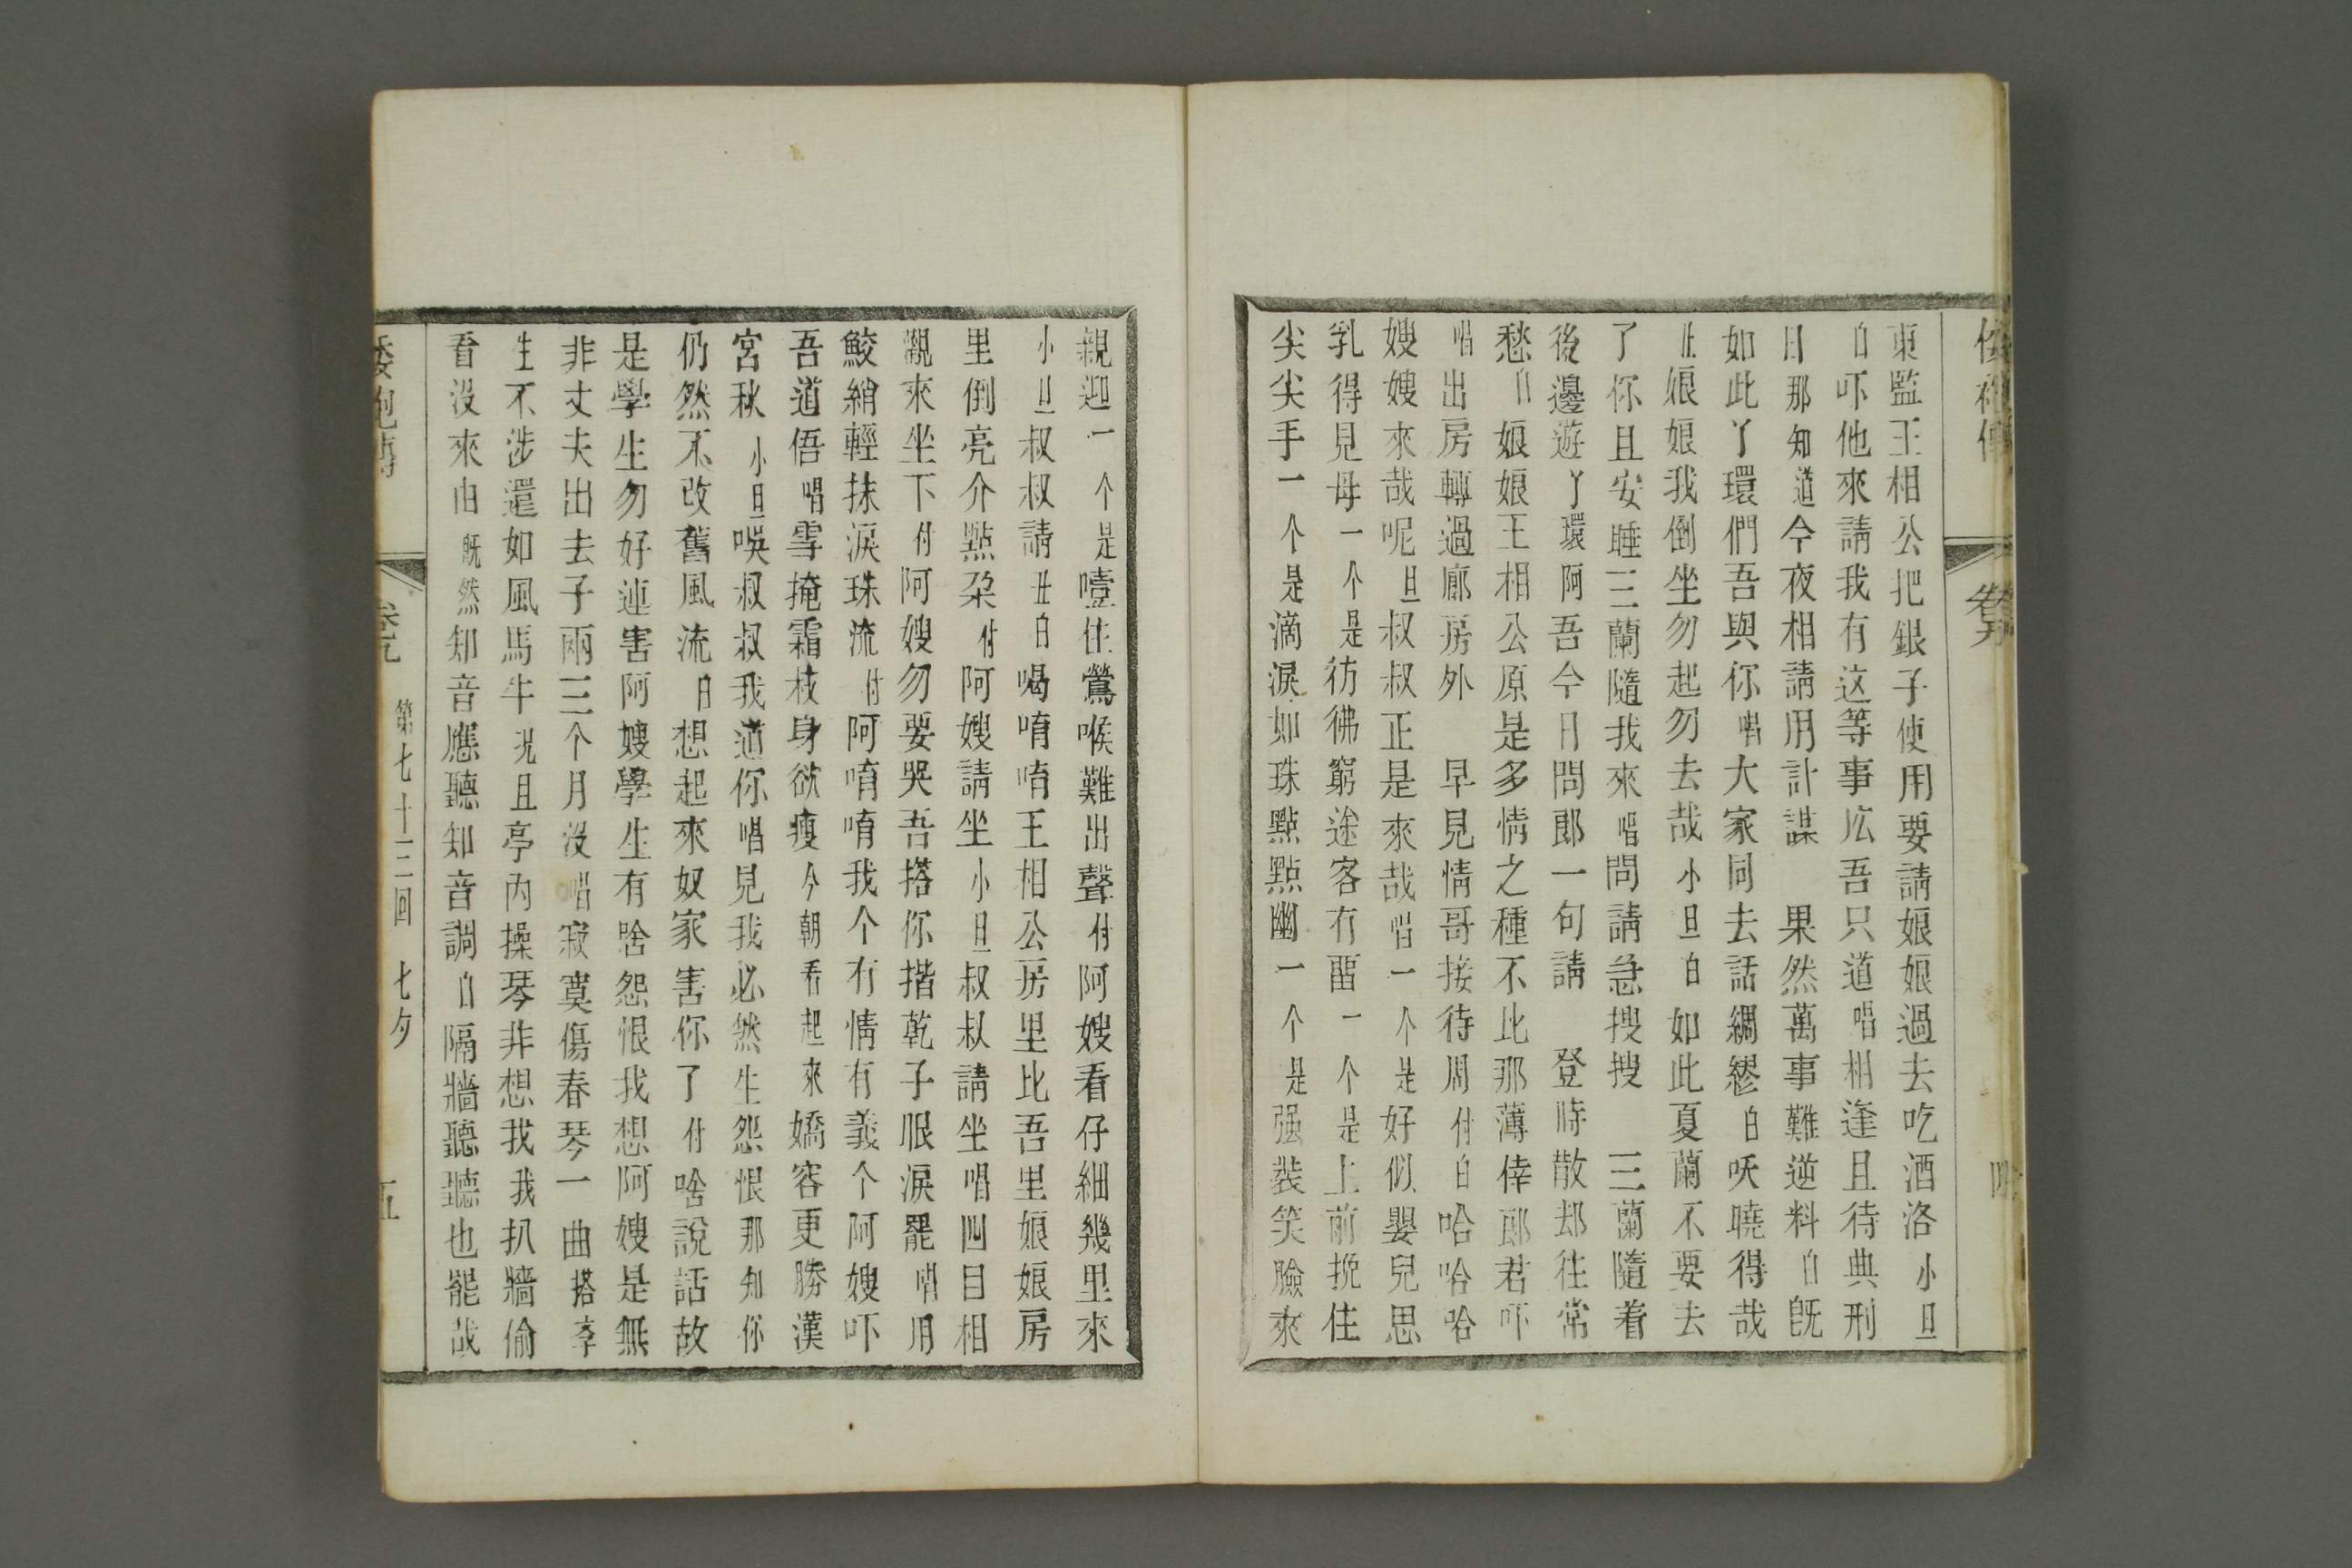 倭袍傳
卷九
東監王相公把銀子使用要請娘娘過去吃酒洛小旦
白吓他來請我有这等事広吾只道唱相逢且待典刑
日那知道今夜相請用計謀 果然萬事難逆料白既
如此丫環們吾與你唱大家同去話綢繆白呋曉得哉
丑娘娘我倒坐勿起勿去哉小旦白如此夏蘭不要去
了你且安睡三蘭隨我來唱問請急搜搜 三蘭隨着
後邊遊丫環阿吾今日問郎一句請 登時散却往常
愁白娘娘王相公原是多情之種不比那薄倖郎君吓
唱出房轉過廊房外 早見情哥接待周付白哈哈哈
嫂嫂來哉呢旦叔叔正是來哉唱一个是好似嬰兒思
乳得見母一个是彷彿窮途客有畱一个是上前挽住
尖尖手一个是滴淚如珠點點幽一个是强裝笑臉來
親迎一个是噎住鶯喉難出聲付阿嫂看仔細幾里來
小旦叔叔請丑白喝唷唷王相公房里比吾里娘娘房
里倒亮介點朶付阿嫂請坐小旦叔叔請坐唱四目相
覵來坐下付阿嫂勿要哭吾搭你揩乾子眼淚罷唱用
鮫綃輕抹淚珠流付阿唷唷我个有情有義个阿嫂吓
吾道俉唱雪掩霜枝身欲瘦今朝看起來嬌容更勝漢
宮秋小旦唉叔叔我道你唱見我必然生怨恨那知你
仍然不改舊風流白想起來奴家害你了付啥說話故
是學生勿好連害阿嫂學生有啥怨恨我想阿嫂是無
非丈夫出去子兩三个月没唱寂寞傷春琴一曲搭李
生不涉還如風馬牛況且亭内操琴非想我我扒牆偷
看没來由既然知音應聽知音調白隔牆聽聽也罷哉
倭袍傳
卷九
第七十三回 七夕
五